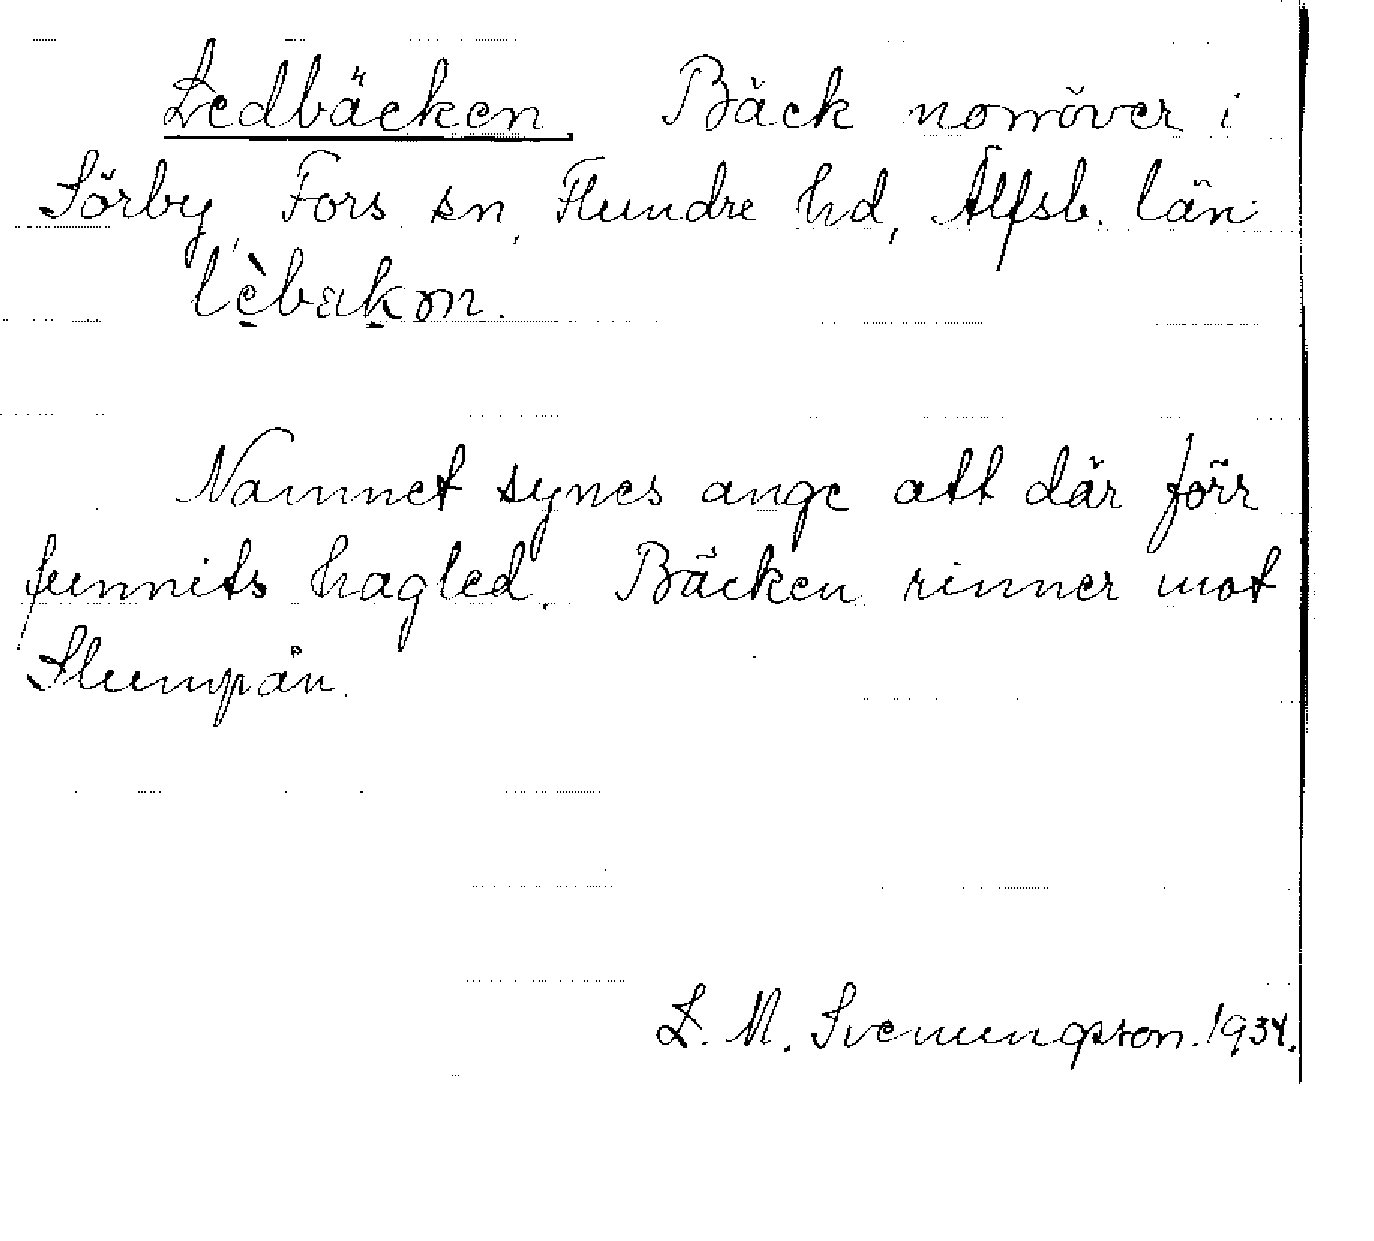 Ledbäcken Bäck norröver i
Sörby, Fors sn, Flundre hd, Älfsb. län
lèbakon.
Namnet synes ange att där förr
funnits hagled. Bäcken rinner mot
Slumpån.
L. M. Svenungsson. 1934.